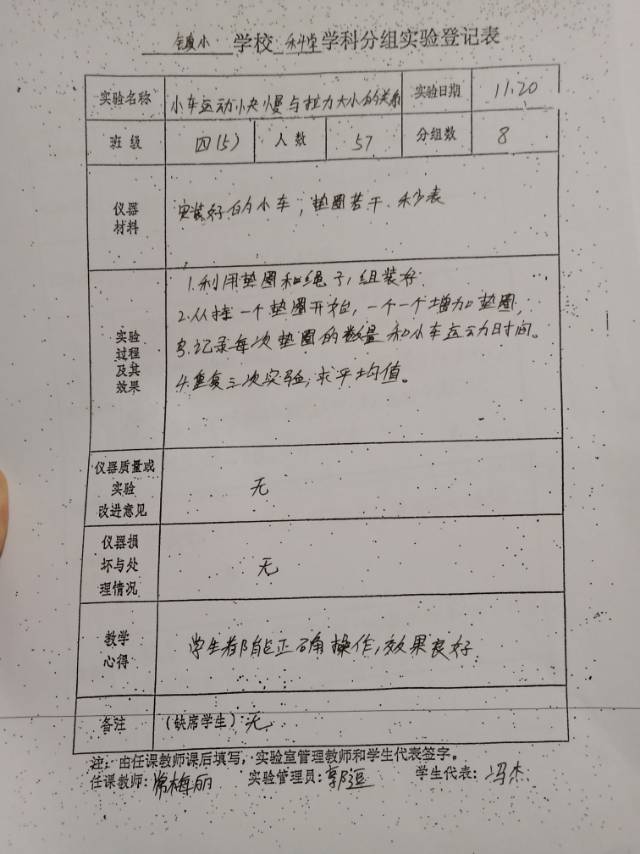 镇小 学校 科学 学科分组实验登记表
实验名称 小车运动快慢与拉力大小的关系 实验日期 11.20
班 级 四(5) 人 数 57 分组数 8
仪器
材料
安装好的小车,垫圈若干、秒表
实验
过程
及其
效果
1.利用垫圈和绳子,组装好.
2.从挂一个垫圈开始,一个一个增加垫圈,
3.记录每次垫圈的数量和小车运动时间。
4.重复三次实验,求平均值。
仪器质量或
实验
改进意见
无
仪器损
坏与处
理情况
无
教学
心得
学生都能正确操作,效果良好
备注 (缺席学生) 无
注:由任课教师课后填写,实验室管理教师和学生代表签字。
任课教师:常梅丽 实验管理员:郭逗 学生代表:冯杰